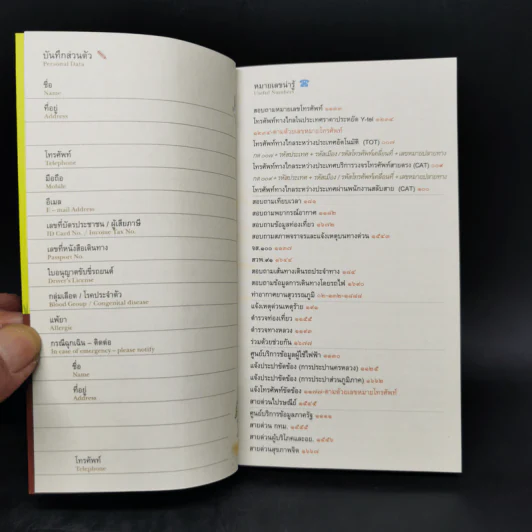 บันทึกส่วนตัว
Personal Data
ชื่อ
Name
ที่อยู่
Address
โทรศัพท์
Telephone
มือถือ
Mobile
อีเมล
E – mail Address
เลขที่บัตรประชาชน / ผู้เสียภาษี
ID Card No. / Income Tax No.
เลขที่หนังสือเดินทาง
Passport No.
ใบอนุญาตขับขี่รถยนต์
Driver's License
กลุ่มเลือด / โรคประจำตัว
Blood Group / Congenital disease
แพ้ยา
Allergic
กรณีฉุกเฉิน – ติดต่อ
In case of emergency – please notify
ชื่อ
Name
ที่อยู่
Address
โทรศัพท์
Telephone
หมายเลขน่ารู้
Useful Numbers
สอบถามหมายเลขโทรศัพท์ ๑๑๓๓
โทรศัพท์ทางไกลในประเทศราคาประหยัด Y-tel ๑๒๓๔
๑๒๓๔-ตามด้วยเลขหมายโทรศัพท์
โทรศัพท์ทางไกลระหว่างประเทศอัตโนมัติ (TOT) ๐๐๗
กด ๐๐๗ + รหัสประเทศ + รหัสเมือง / รหัสโทรศัพท์เคลื่อนที่ + เลขหมายปลายทาง
โทรศัพท์ทางไกลระหว่างประเทศบริการวงจรโทรศัพท์สายตรง (CAT)
รหัสประเทศ + รหัสเมือง / รหัสโทรศัพท์เคลื่อนที่ + เลขหมายปลายทาง
โทรศัพท์ทางไกลระหว่างประเทศผ่านพนักงานสลับสาย (CAT) ๑๐๐
สอบถามเทียบเวลา ๑๘๑
สอบถามพยากรณ์อากาศ ๑๑๘๒
สอบถามข้อมูลท่องเที่ยว ๑๖๗๒
สอบถามสภาพจราจรและแจ้งเหตุบนทางด่วน ๑๕๔๓
จส.๑๐๐ ๑๑๓๗
สวพ.๙๑ ๑๖๔๔
สอบถามเส้นทางเดินรถประจำทาง ๑๘๔
สอบถามข้อมูลการเดินทางโดยรถไฟ ๑๖๙๐
ท่าอากาศยานสุวรรณภูมิ ๐๒-๑๓๒-๑๘๘๘
แจ้งเหตุด่วนเหตุร้าย ๑๙๑
ตำรวจท่องเที่ยว ๑๑๕๕
ตำรวจทางหลวง ๑๑๙๓
ร่วมด้วยช่วยกัน ๑๖๗๗
ศูนย์บริการข้อมูลผู้ใช้ไฟฟ้า ๑๑๓๐
แจ้งประปาขัดข้อง (การประปานครหลวง) ๑๑๒๕
แจ้งประปาขัดข้อง (การประปาส่วนภูมิภาค) ๑๖๖๒
แจ้งโทรศัพท์ขัดข้อง ๑๑๗๗-ตามด้วยเลขหมายโทรศัพท์
สายด่วนไปรษณีย์ ๑๕๔๕
ศูนย์บริการข้อมูลภาครัฐ ๑๑๑๑
สายด่วน กทม. ๑๕๕๕
สายด่วนผู้บริโภคและอย. ๑๕๕๖
สายด่วนสุขภาพจิต ๑๖๖๗